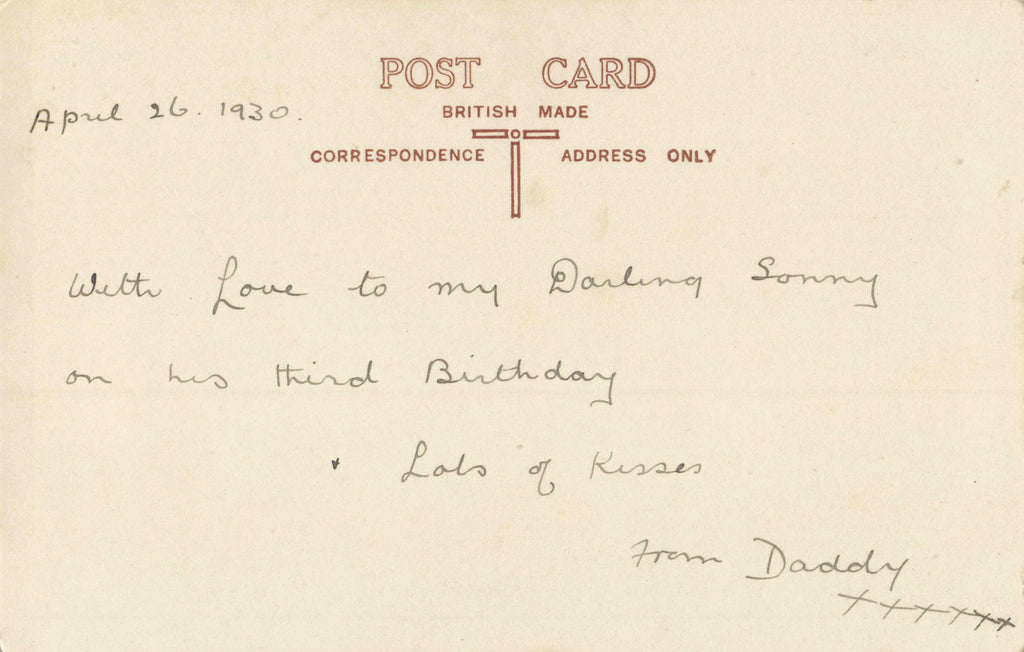 POST CARD
April 26. 1930.
BRITISH MADE
CORRESPONDENCE ADDRESS ONLY
With Love to my Darling Sonny
on his third Birthday
+ Lots of Kisses
From Daddy
x x x x x x x